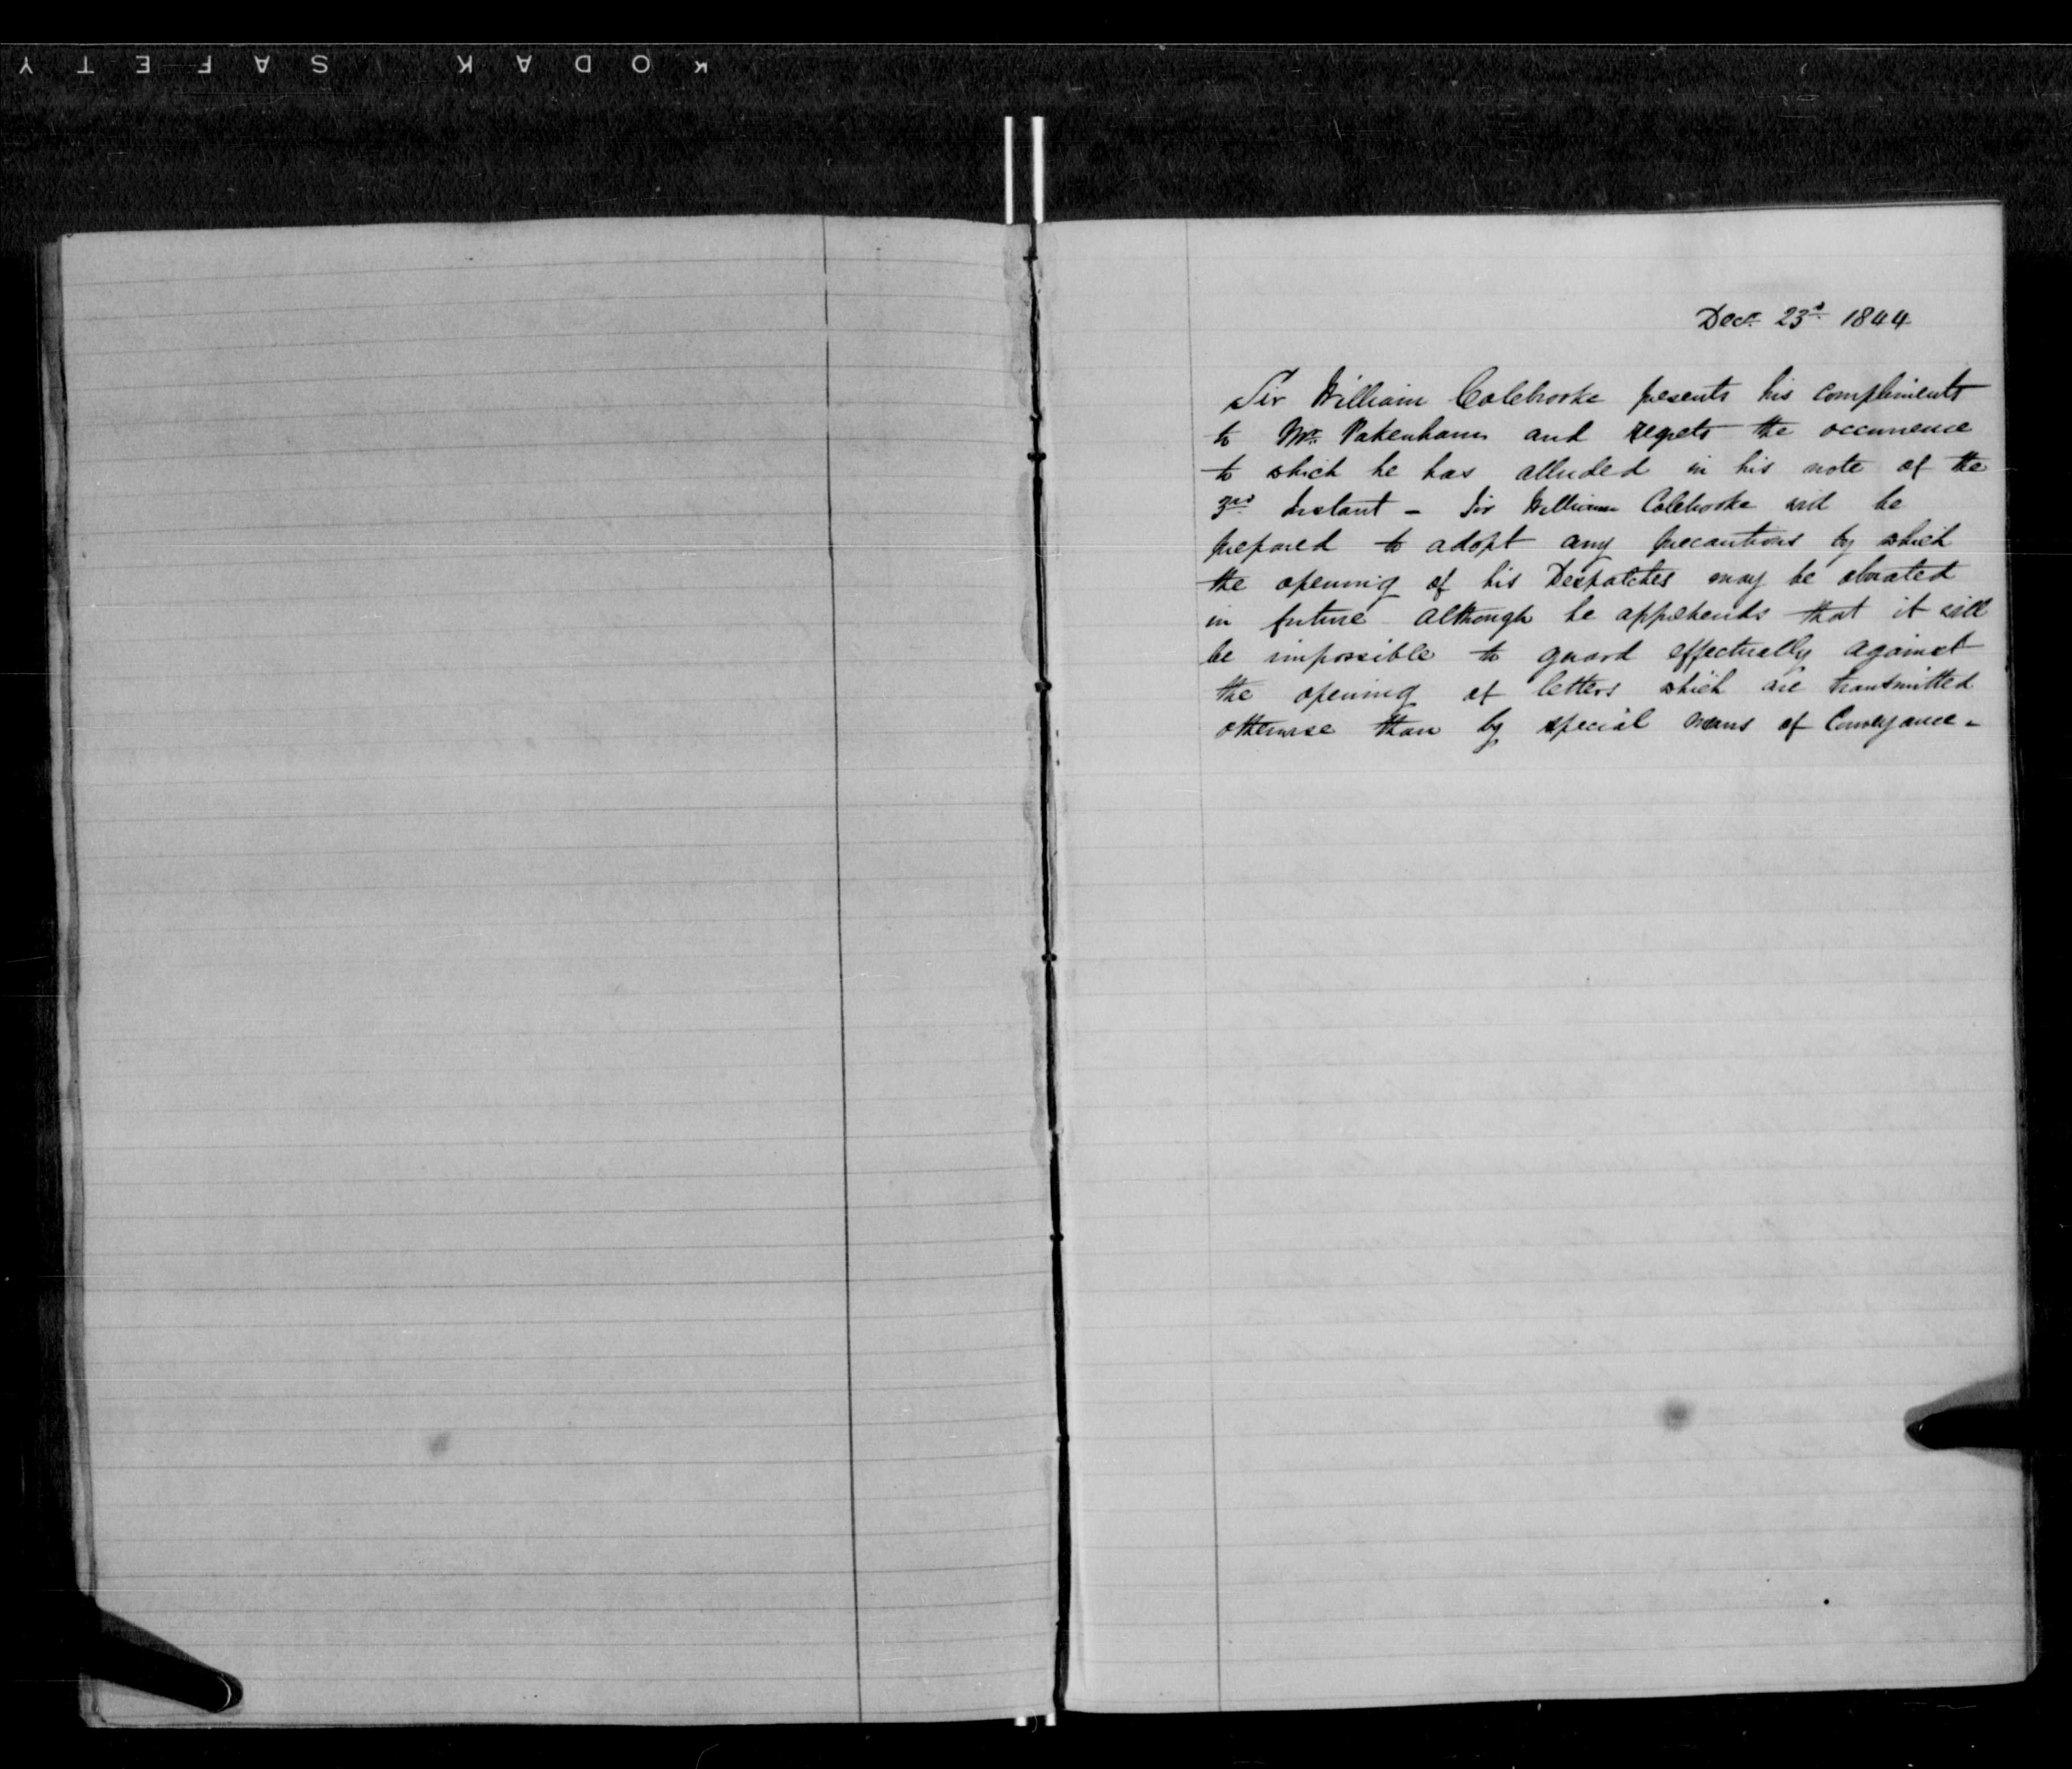 KODAK SAFETY
Decr. 23d. 1844
Sir William Colebrooke presents his compliments
to Mr. Pakenham and regrets the occurrence
to which he has alluded in his note of the
3rd Instant - Sir William Colebrooke will be
prepared to adopt any precautions by which
the opening of his Despatches may be obviated
in future although he apprehends that it will
be impossible to guard effectually against
the opening of letters which are transmitted
otherwise than by special means of Conveyance -